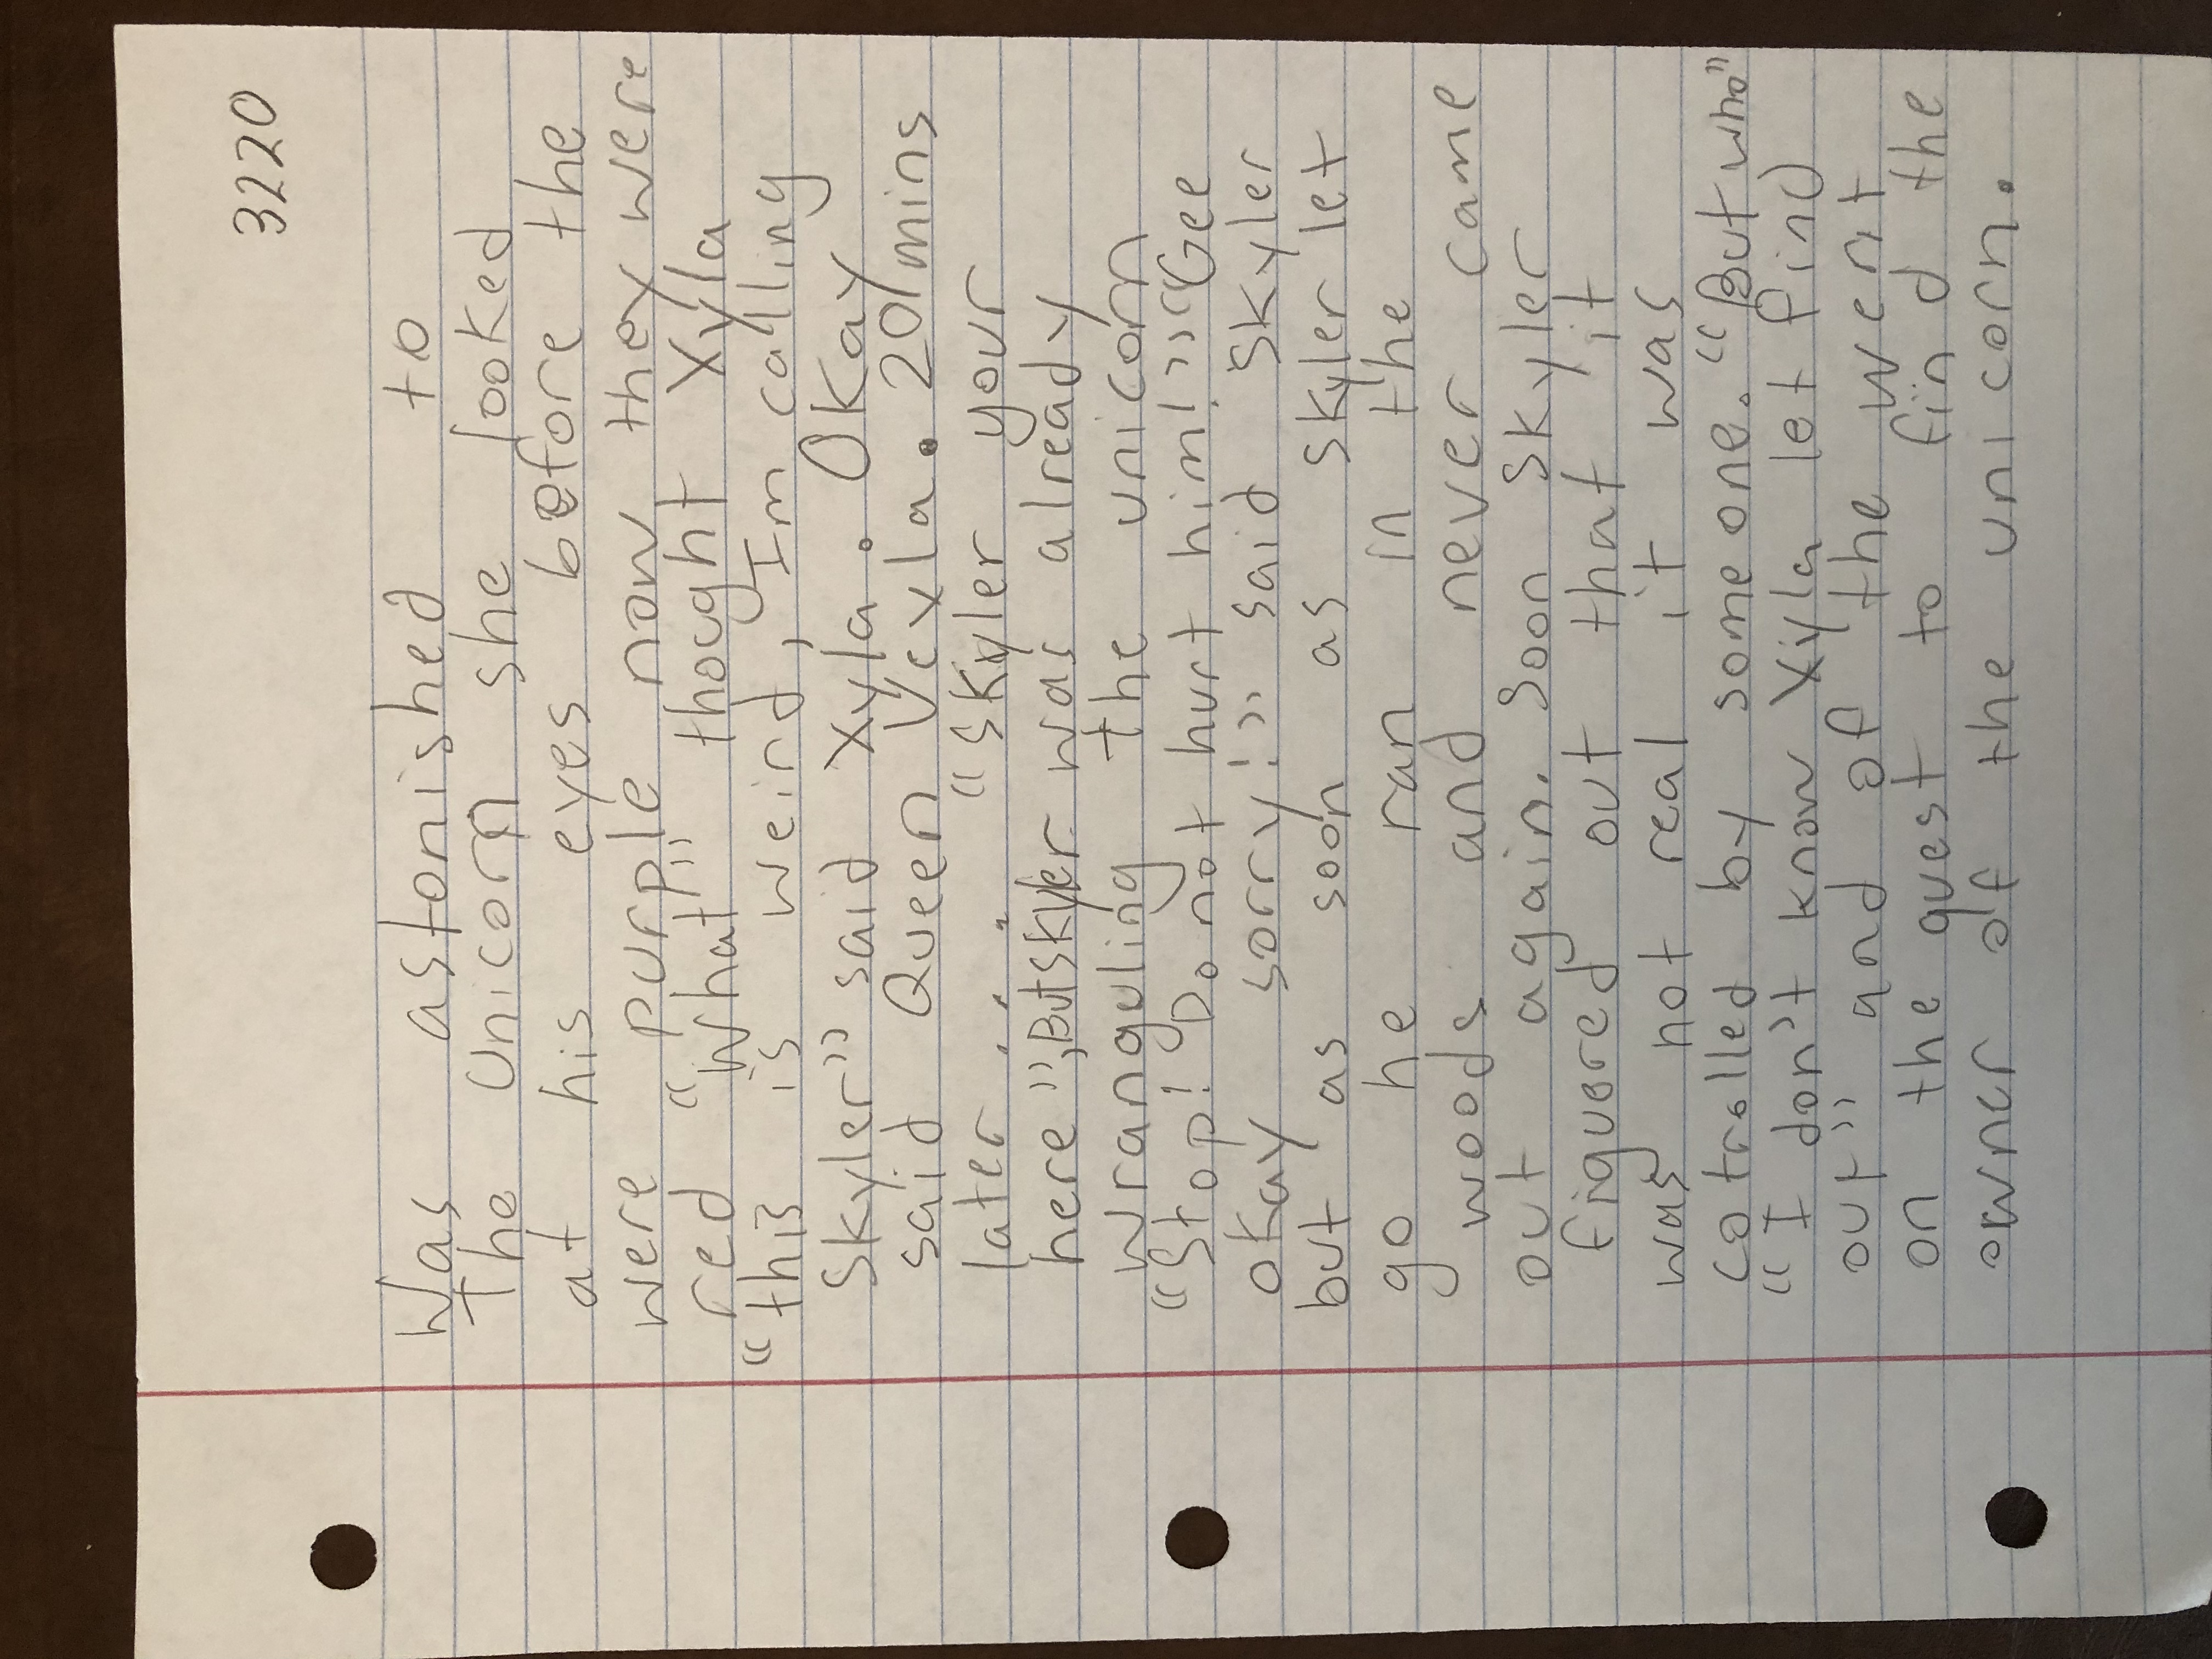 3220
Was astonished to
The Unicorn she looked
at his eyes before the
were purple now they were
red "What" thought Xyla
"this is weird, Im calling
Skyler" said Xyla. Okay
said Queen Vexla. 20 mins
later ... "Skyler your
here", But Skyler was already
wranguling the unicorn
"Stop! Do not hurt him!" "Gee
okay sorry!" said Skyler
but as soon as Skyler let
go he ran in the
woods and never came
out again. Soon Skyler
figuered out that it
was not real it was
cotrolled by some one. "But who"
"I don't know Xyla let find
out" and of the went
on the quest to find the
owner of the unicorn.